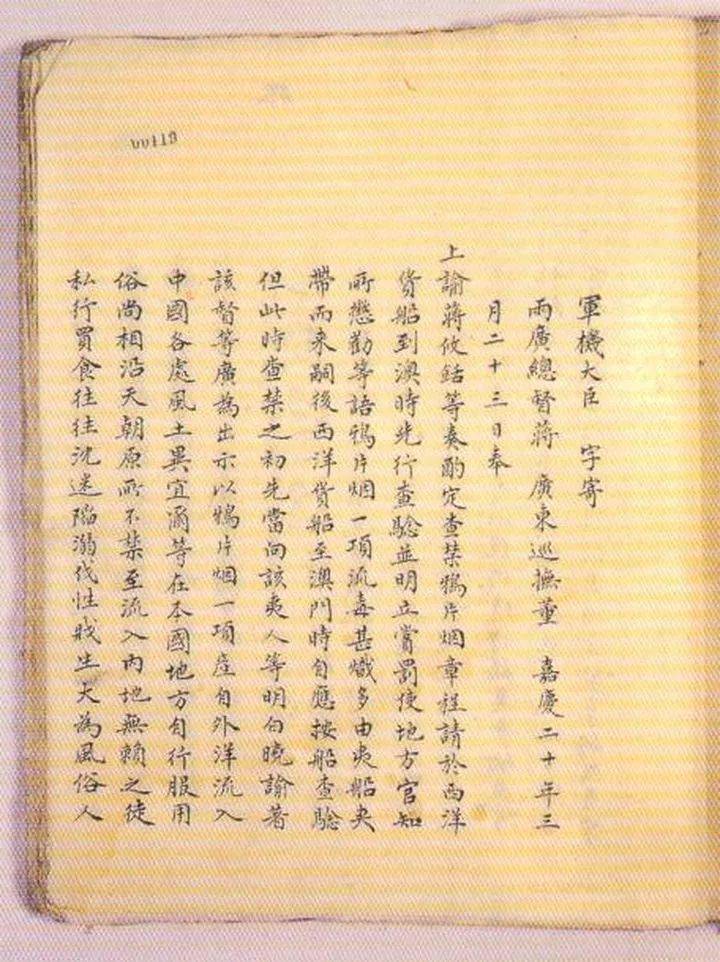 00119
軍機大臣 字寄
兩廣總督蔣 廣東巡撫董 嘉慶二十年三
月二十三日奉
上諭蔣攸銛等奏酌定查禁鴉片烟章程請於西洋
貨船到澳時先行查驗並明立賞罰使地方官知
所懲勸等語鴉片烟一項流毒甚熾多由夷船夾
帶而來嗣後西洋貨船至澳門時自應按船查驗
但此時查禁之初先當向該夷人等明白曉諭著
該督等廣為出示以鴉片烟一項產自外洋流入
中國各處風土異宜爾等在本國地方自行服用
俗尚相沿天朝原所不禁至流入內地無賴之徒
私行買食往往沈迷陷溺伐性戕生大為風俗人